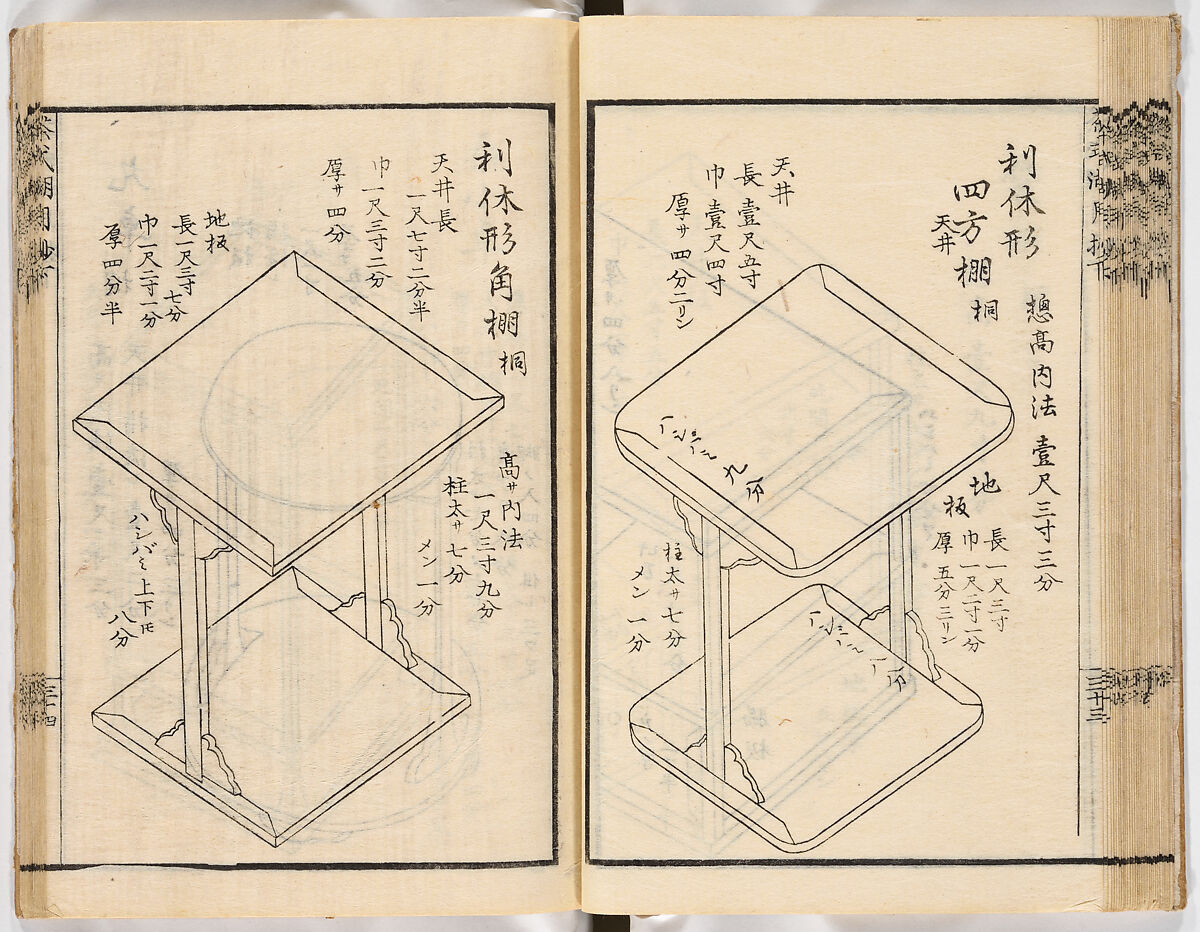 利休形
四方棚 桐
惣高内法 壹尺三寸三分
天井
天井
長壹尺五寸
巾壹尺四寸
厚サ四分二リン
ハシバミ九分
地板
長一尺三寸
巾一尺二寸二分
厚五分三リン
柱太サ七分
メン一分
ハシバミ八分
三十三
利休形角棚 桐
天井長
一尺七寸二分半
巾一尺三寸二分
厚サ四分
地板
長一尺三寸七分
巾一尺二寸一分
厚四分半
高サ内法
一尺三寸九分
柱太サ七分
メン一分
ハシバミ上下圧
八分